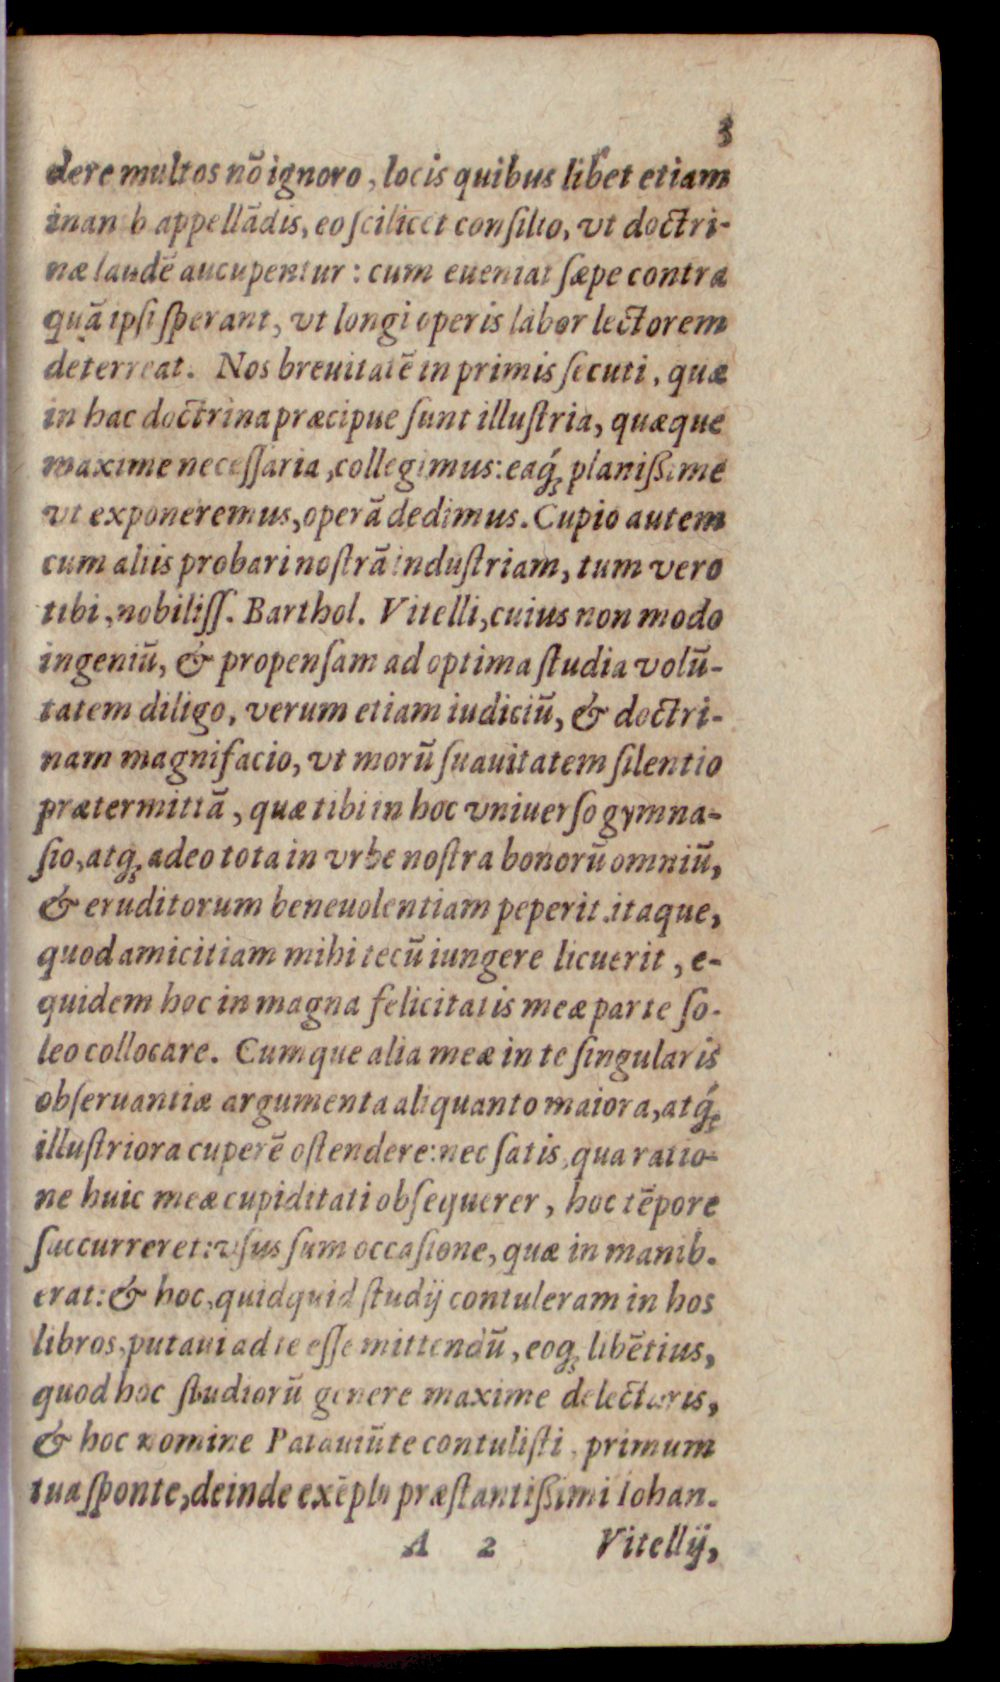 3
dere multos nō ignoro, locis quibus libet etiam
inanib appellādis, eo ſcilicet conſilio, vt doctri-
næ laudē aucupentur: cum eueniat ſæpe contra
quā ipſi ſperant, vt longi operis labor lectorem
deterreat. Nos breuitatē in primis ſecuti, quæ
in hac doctrina præcipue ſunt illuſtria, quæque
maxime neceſſaria, collegimus: eaq́ꝫ planiſſime
vt exponeremus, operā dedimus. Cupio autem
cum aliis probari noſtrā induſtriam, tum vero
tibi, nobiliſſ. Barthol. Vitelli, cuius non modo
ingeniū, & propenſam ad optima ſtudia volū-
tatem diligo, verum etiam iudiciū, & doctri-
nam magnifacio, vt morū ſuauitatem ſilentio
prætermittā, quæ tibi in hoc vniuerſo gymna-
ſio, atqꝫ adeo tota in vrbe noſtra bonorū omniū,
& eruditorum beneuolentiam peperit. itaque,
quod amicitiam mihi tecū iungere licuerit, e-
quidem hoc in magna felicitatis meæ parte ſo-
leo collocare. Cumque alia meæ in te ſingularis
obſeruantiæ argumenta aliquanto maiora, atq́ꝫ
illuſtriora cuperē oſtendere: nec ſatis, qua ratio-
ne huic meæ cupiditati obſequerer, hoc tēpore
ſuccurreret: vſus ſum occaſione, quæ in manib.
erat: & hoc, quidquid ſtudij contuleram in hos
libros, putaui ad te eſſe mittendū, eoqꝫ libētius,
quod hoc ſtudiorū genere maxime delectaris,
& hoc nomine Patauiū te contuliſti, primum
tua ſponte, deinde exēplo præſtantiſſimi Iohan.
A 2 Vitellij,